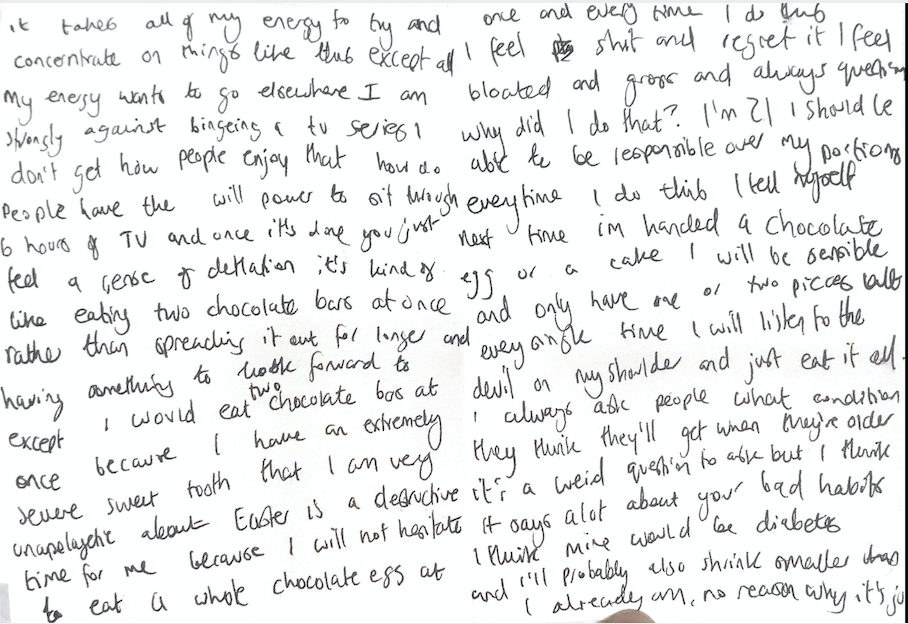 it takes all of my energy to try and
concentrate on things like this except all
my energy wants to go elsewhere I am
strongly against bingeing a tv series I
don't get how people enjoy that how do
people have the will power to sit through
6 hours of TV and once it's done you just
feel a sense of deflation it's kind of
like eating two chocolate bars at once
rather than spreading it out for longer and
having something to look forward to
except I would eat two chocolate bars at
once because I have an extremely
severe sweet tooth that I am very
unapologetic about Easter is a destructive
time for me because I will not hesitate
to eat a whole chocolate egg at
once and every time I do this
I feel shit and regret it I feel
bloated and gross and always question
why did I do that? I'm 21 I should be
able to be responsible over my portions
everytime I do this I tell myself
next time im handed a chocolate
egg or a cake I will be sensible
and only have one or two pieces but
every single time I will listen to the
devil on my shoulder and just eat it all.
I always ask people what condition
they think they'll get when they're older
it's a weird question to ask but I think
it says alot about your bad habits
I think mine would be diabetes
and I'll probably also shrink smaller than
I already am, no reason why it's